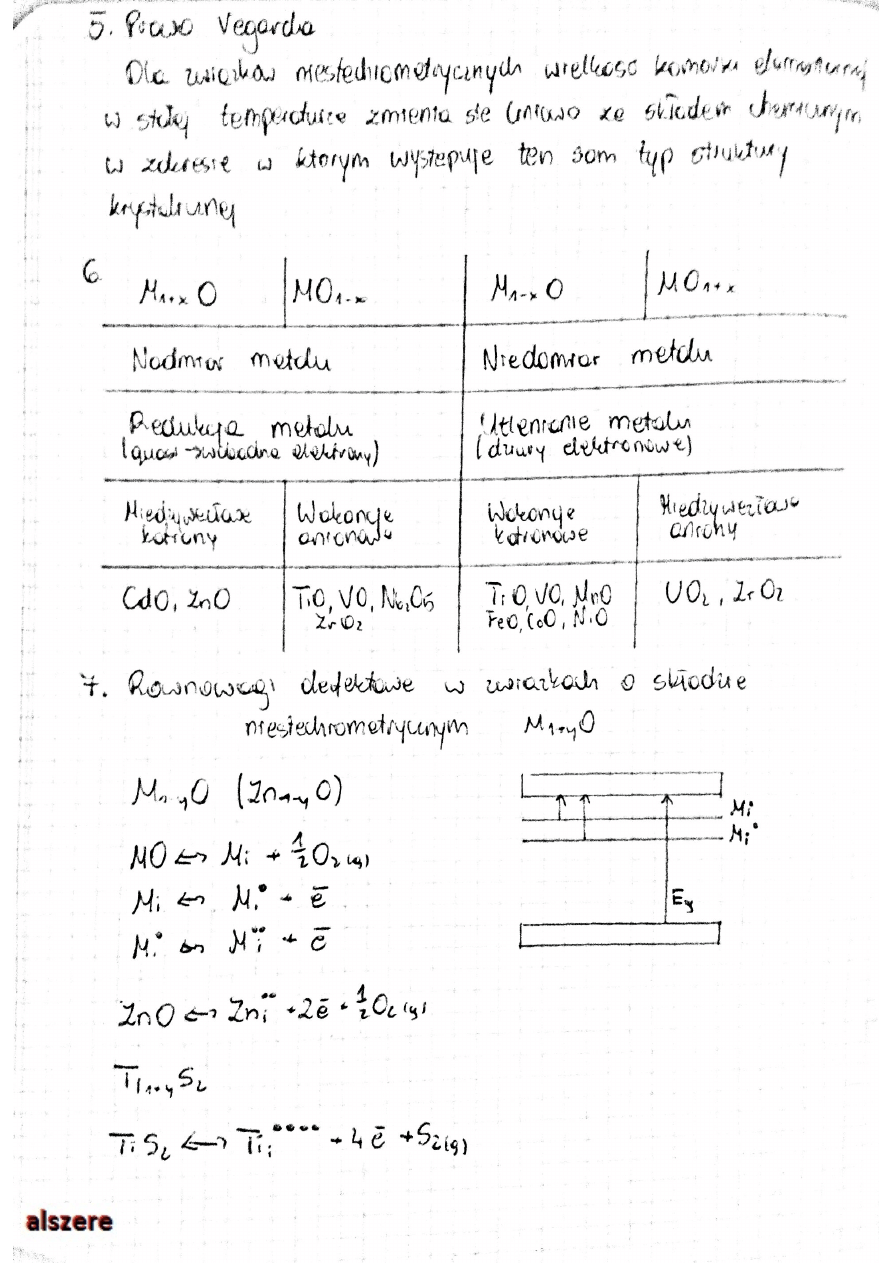 5. Prawo Vegarda
Dla związków niestechiometrycznych wielkość komórki elementarnej
w stałej temperaturze zmienia się liniowo ze składem chemicznym
w zakresie w którym występuje ten sam typ struktury
krystalicznej
6 M₁₊ₓO | MO₁₋ₓ | M₁₋ₓO | MO₁₊ₓ
Nadmiar metalu | Niedomiar metalu
Redukcja metalu | Utlenianie metalu
(quasi-swobodne elektrony) | (dziury elektronowe)
Międzywęzłowe | Wakancje | Wakancje | Międzywęzłowe
kationy | anionowe | kationowe | aniony
CdO, ZnO | TiO, VO, Nb₂O₅ | TiO, VO, MnO | UO₂, ZrO₂
ZrO₂ | FeO, CoO, NiO
7. Równowagi defektowe w związkach o składzie
niestechiometrycznym M₁₊yO
M₁₊yO (Zn₁₊yO)
MO ↔ Mi + 1/2 O₂(g)
Mi ↔ Mi• + ē
Mi• ↔ Mi•• + ē
Mi
Mi•
Eg
ZnO ↔ Zni•• + 2ē + 1/2 O₂(g)
Ti₁₊yS₂
TiS₂ ↔ Tii•••• + 4ē + S₂(g)
alszere